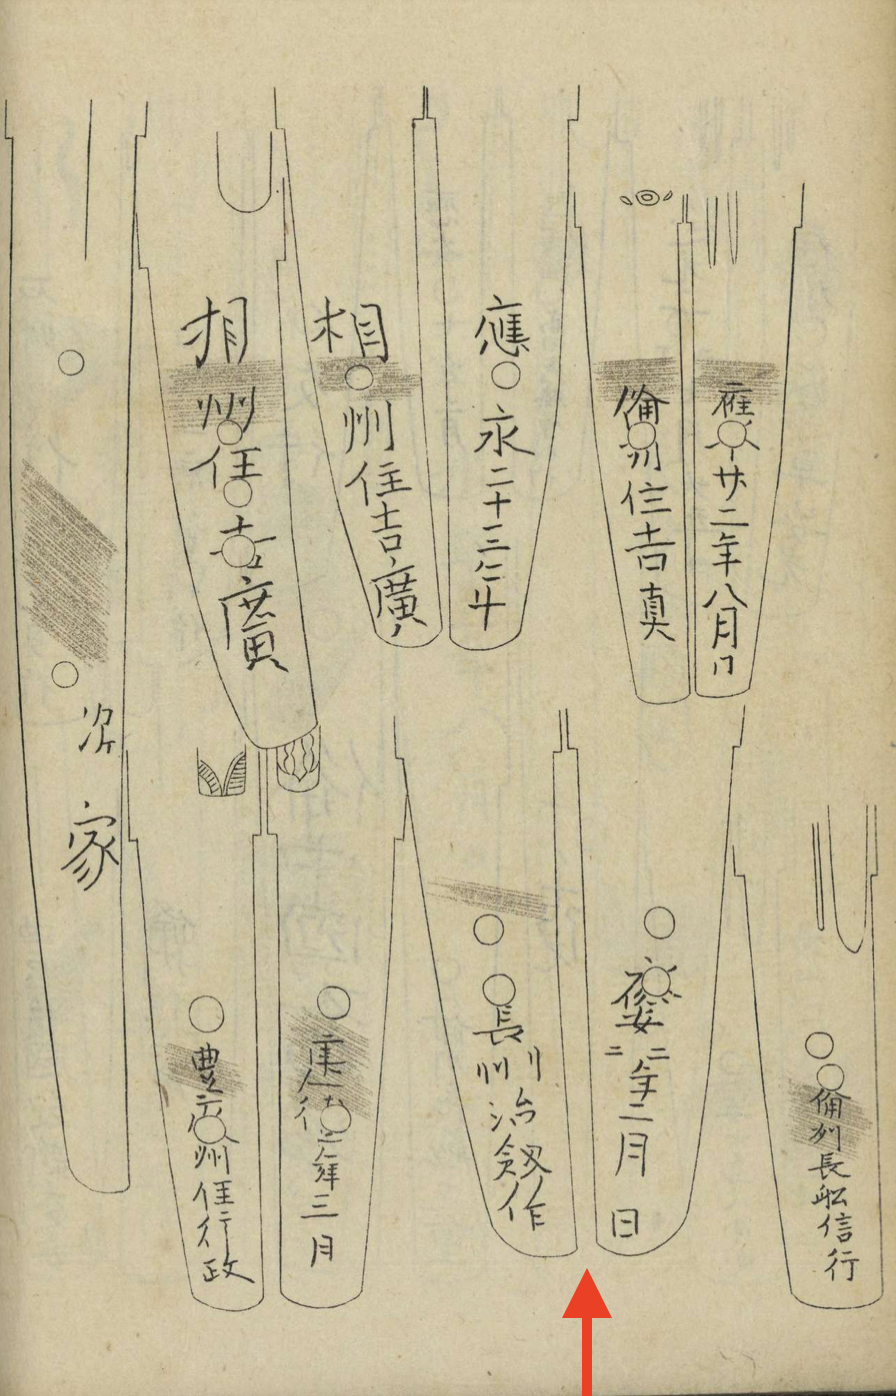 應永廿二年八月日
備州住吉真
應永二十三年
相州住吉廣
相州住吉廣
次家
備州長舩信行
應安二二年二月日
長州
作
年三月
豊
州住行政